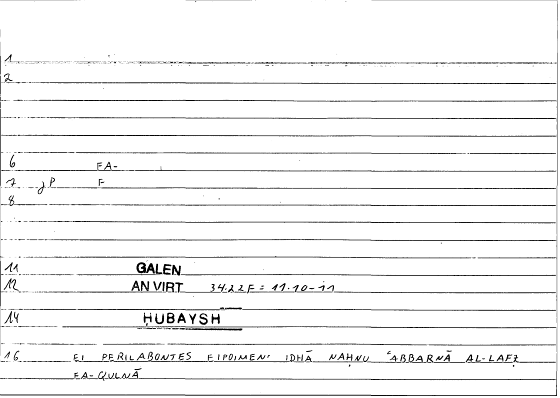 1
2
6 FA-
7 jP F
8
11 GALEN
12 AN VIRT 34.22F = 11.10-11
14 ḤUBAYSH
16 EI PERILABONTES EIPOIMEN' IDHĀ NAḤNU ʿABBARNĀ AL-LAFẒ
FA-QULNĀ